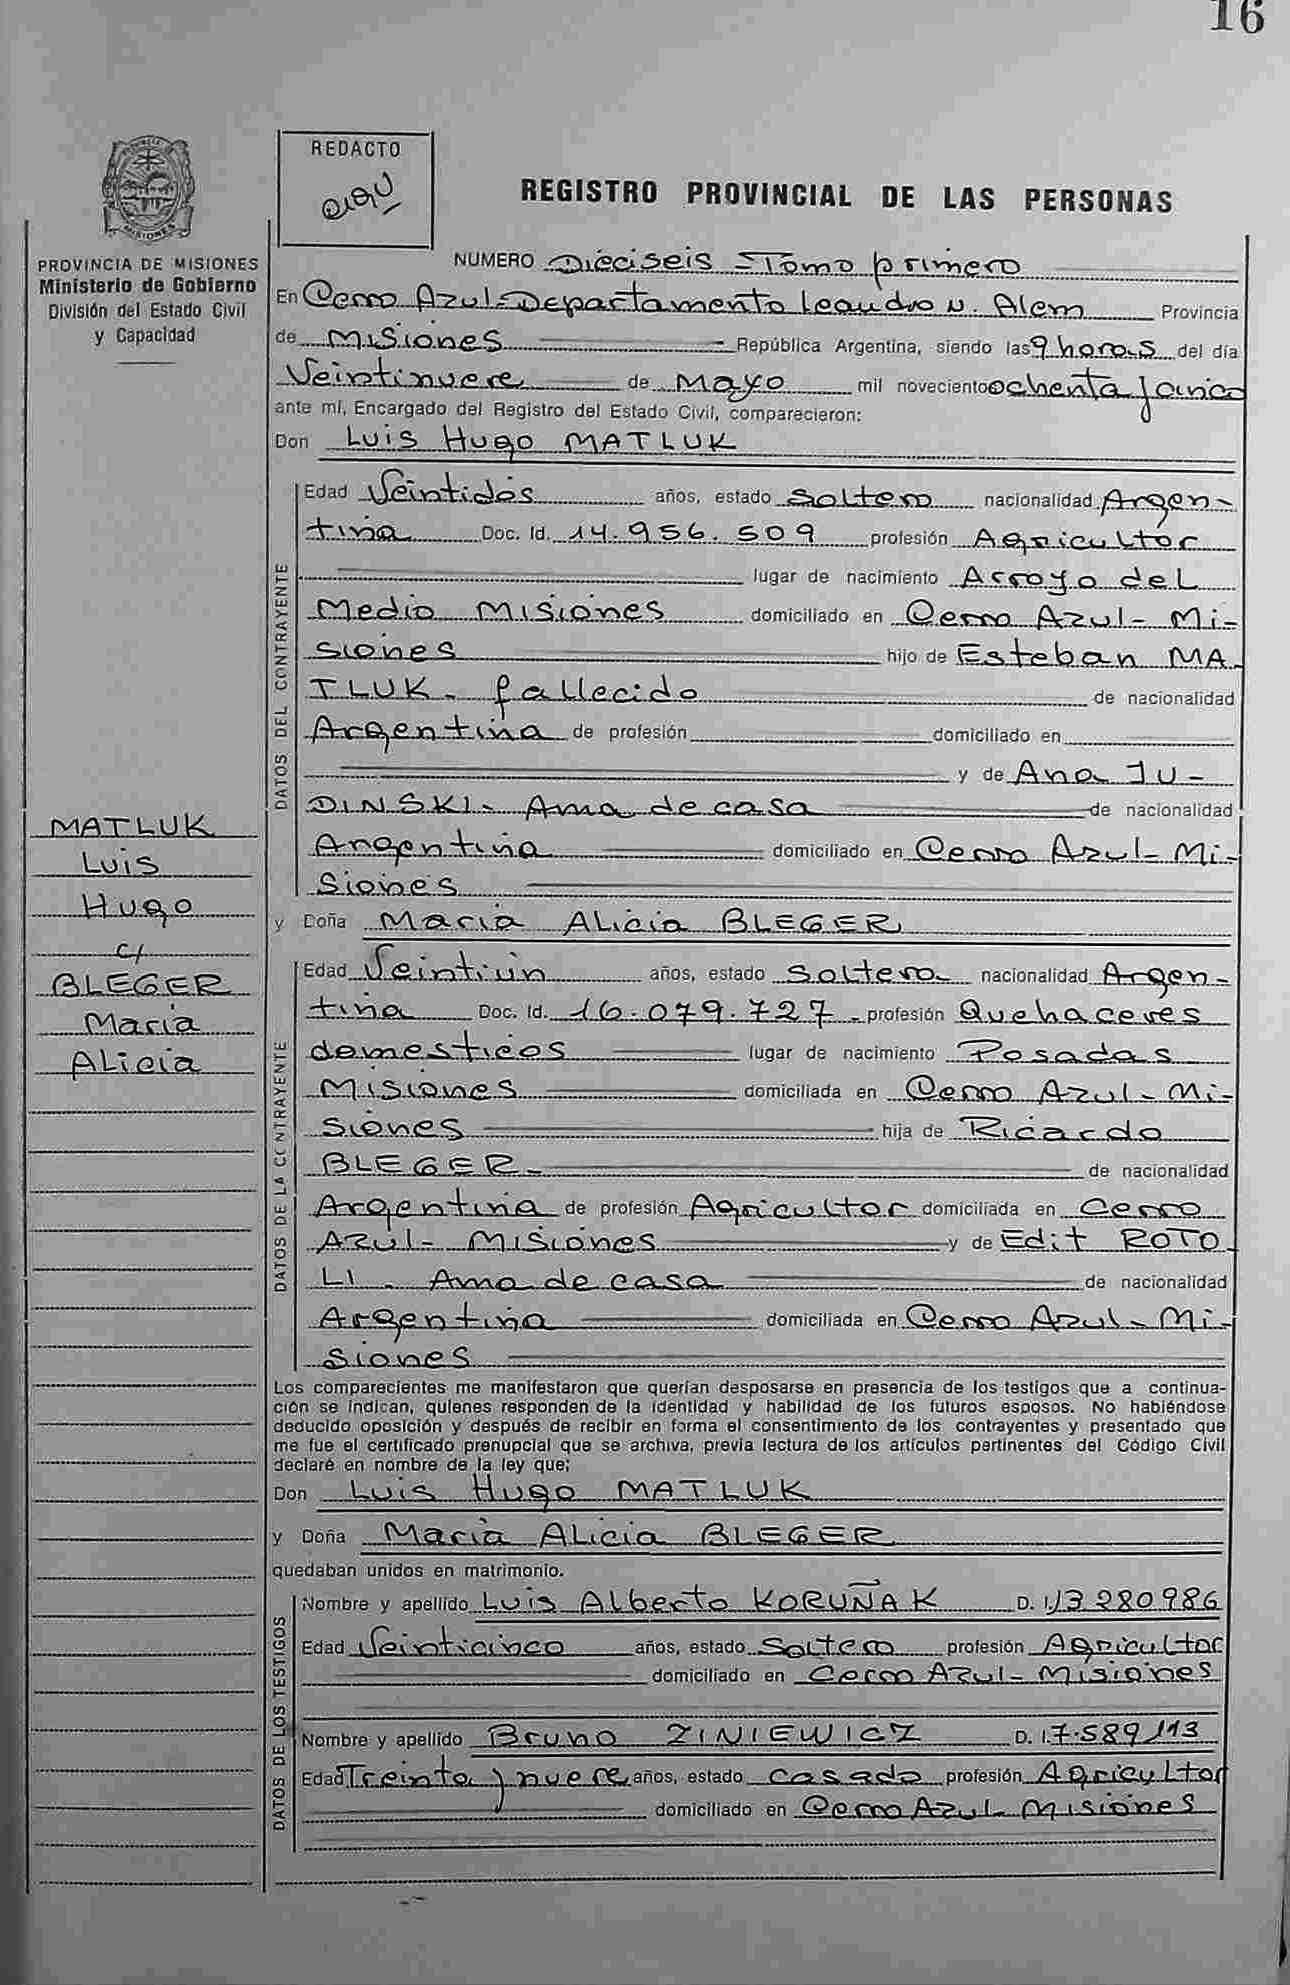 16
REDACTO
REGISTRO PROVINCIAL DE LAS PERSONAS
PROVINCIA DE MISIONES
Ministerio de Gobierno
División del Estado Civil
y Capacidad
NUMERO Diéciseis = Tomo primero
En Cerro Azul-Departamento Leandro N. Alem Provincia
de Misiones República Argentina, siendo las 9 horas del día
Veintinueve de Mayo mil novecientos ochenta y cinco
ante mí, Encargado del Registro del Estado Civil, comparecieron:
Don Luis Hugo MATLUK
DATOS DEL CONTRAYENTE
Edad Veintidós años, estado Soltero nacionalidad Argen-
tina Doc. Id. 14.956.509 profesión Agricultor
lugar de nacimiento Arroyo del
Medio Misiones domiciliado en Cerro Azul- Mi-
siones hijo de Esteban MA
TLUK- fallecido de nacionalidad
Argentina de profesión domiciliado en
y de Ana JU-
DINSKI- Ama de casa de nacionalidad
Argentina domiciliado en Cerro Azul- Mi-
siones
y Doña Maria Alicia BLEGER
MATLUK
Luis
Hugo
c/
BLEGER
Maria
Alicia
DATOS DE LA CONTRAYENTE
Edad Veintiún años, estado Soltera nacionalidad Argen-
tina Doc. Id. 16.079.727- profesión Quehaceres
domesticos lugar de nacimiento Posadas
Misiones domiciliada en Cerro Azul- Mi-
siones hija de Ricardo
BLEGER- de nacionalidad
Argentina de profesión Agricultor domiciliada en Cerro
Azul- Misiones y de Edit ROTO
LI - Ama de casa de nacionalidad
Argentina domiciliada en Cerro Azul- Mi-
siones
Los comparecientes me manifestaron que querían desposarse en presencia de los testigos que a continua-
ción se indican, quienes responden de la identidad y habilidad de los futuros esposos. No habiéndose
deducido oposición y después de recibir en forma el consentimiento de los contrayentes y presentado que
me fue el certificado prenupcial que se archiva, previa lectura de los artículos pertinentes del Código Civil
declaré en nombre de la ley que:
Don Luis Hugo MATLUK
y Doña Maria Alicia BLEGER
quedaban unidos en matrimonio.
DATOS DE LOS TESTIGOS
Nombre y apellido Luis Alberto KORUÑAK D. I. 13 280986
Edad Veinticinco años, estado Soltero profesión Agricultor
domiciliado en Cerro Azul- Misiones
Nombre y apellido Bruno ZINIEWICZ D. I. 7.589113
Edad Treinta y nueve años, estado casado profesión Agricultor
domiciliado en Cerro Azul- Misiones